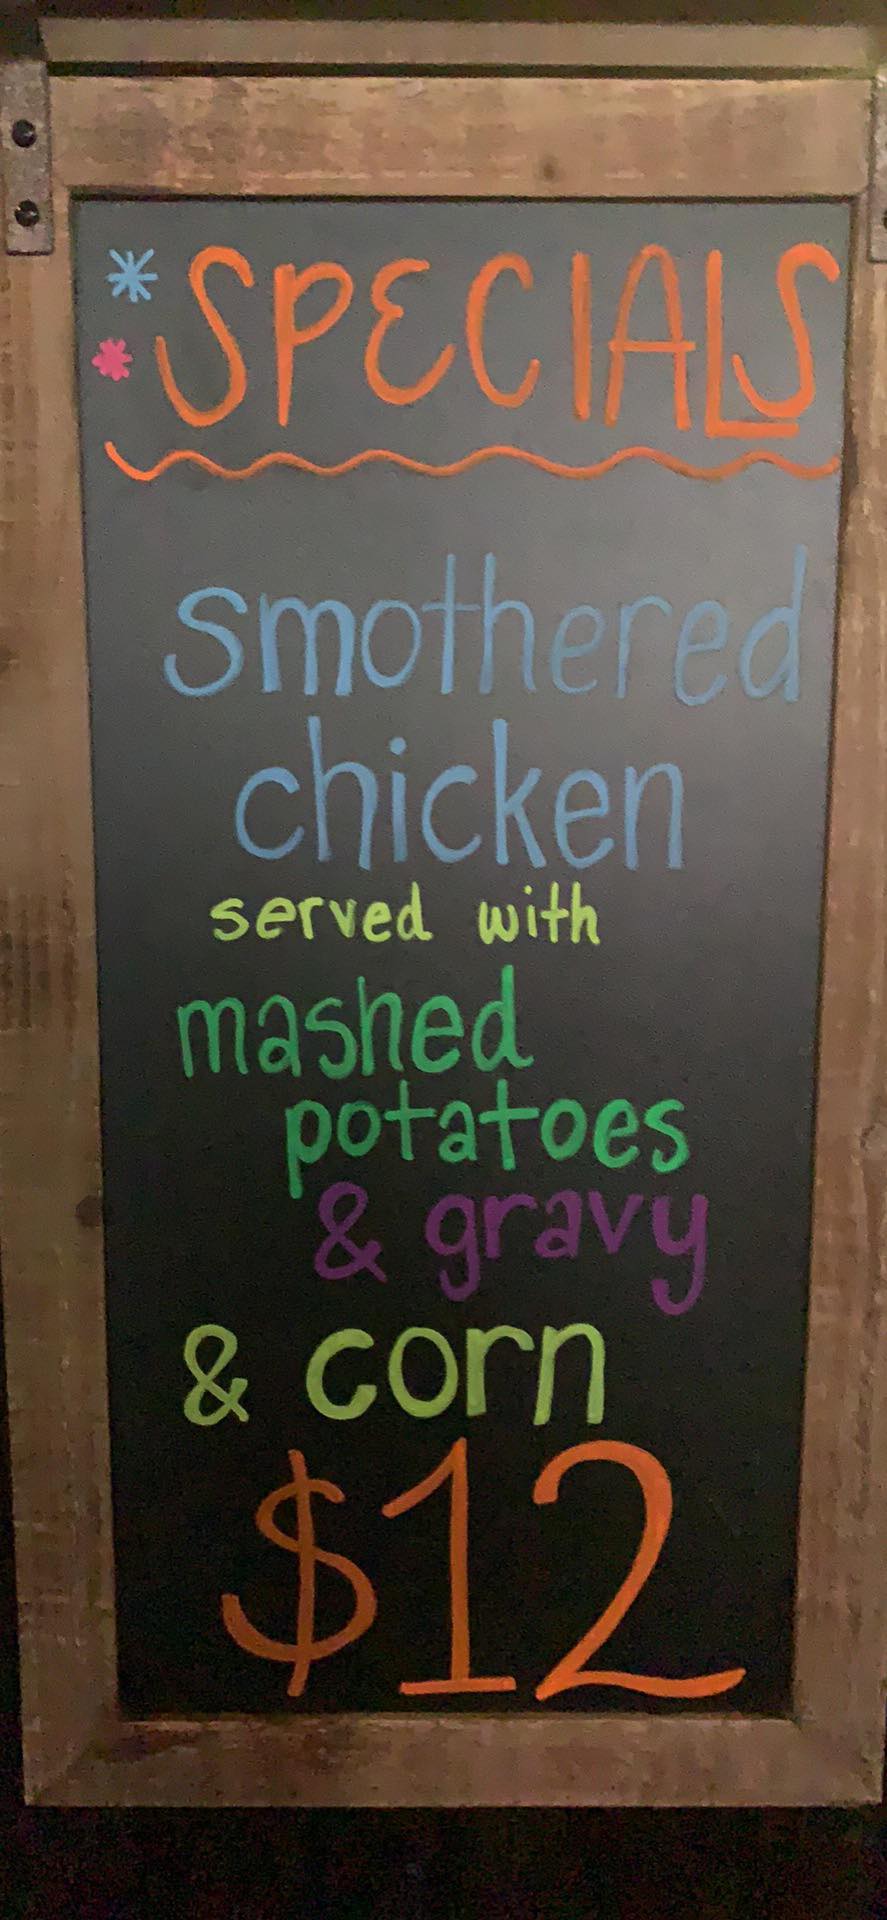 SPECIALS
smothered
chicken
served with
mashed
potatoes
& gravy
& corn
$12